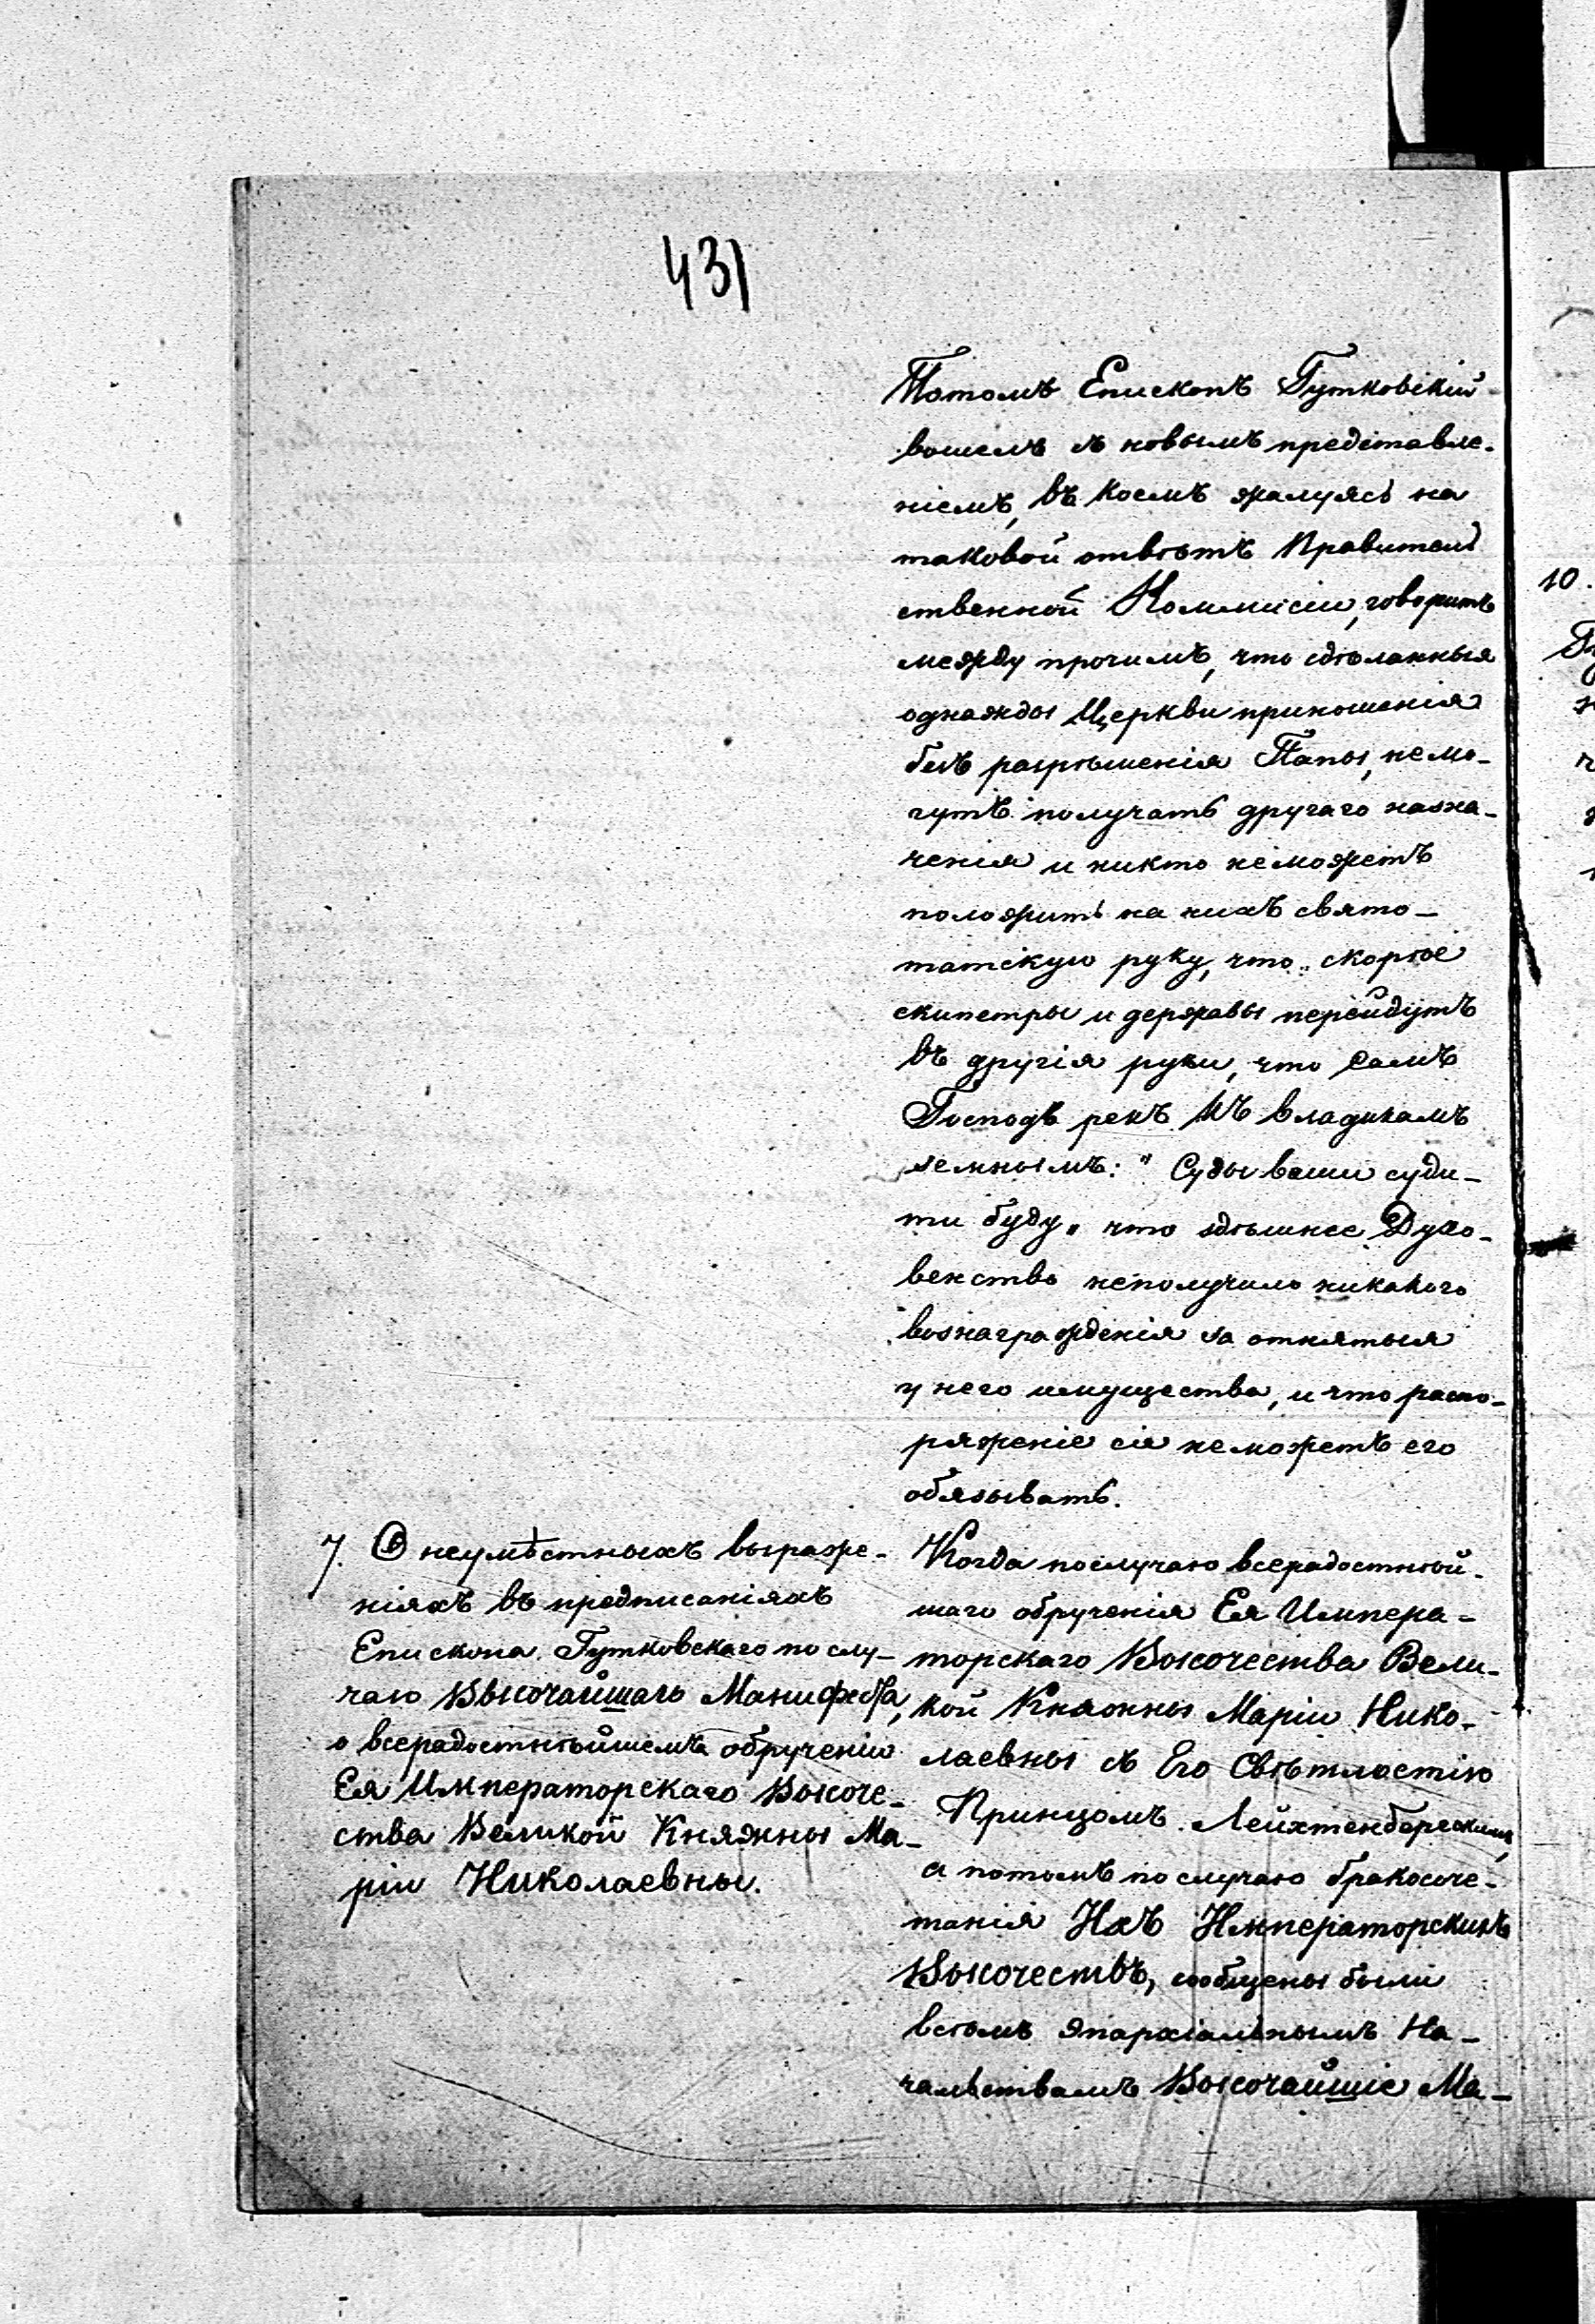 431
Потомъ Епископъ Гутковскій
вошелъ съ новымъ представле-
ніемъ, въ коемъ жалуясь на
таковой отвѣтъ Правитель
ственной Коммисіи, говоритъ
между прочимъ, что сдѣланныя
однажды Церкви приношенія
безъ разрѣшенія Папы, не мо-
гутъ получать другаго назна-
ченія и никто неможетъ
положить на нихъ свято-
татскую руку, что „скорѣе
скипетры и державы перейдутъ
въ другія руки, что самъ
Господь рекъ къ владыкамъ
земнымъ: " Суды ваши суди-
ти буду„ что здѣшнее Духо-
венство неполучило никакого
вознагражденія за отнятыя
у него имущества, и что распо-
ряженіе сіе неможетъ его
обязывать.
7. О неумѣстныхъ выраже-
ніяхъ въ предписаніяхъ
Епископа Гутковскаго по слу-
чаю Высочайшаго Манифеста,
о всерадостнѣйшемъ обрученіи
Ея Императорскаго Высоче-
ства Великой Княжны Ма-
ріи Николаевны.
Когда послучаю всерадостнѣй-
шаго обрученія Ея Импера-
торскаго Высочества Вели-
кой Княжны Маріи Нико-
лаевны съ Его Свѣтлостію
Принцомъ Лейхтенбергскимъ,
а потомъ по случаю бракосоче-
танія Ихъ Императорскихъ
Высочествъ, сообщены были
всѣмъ Эпархіальнымъ На-
чальствамъ Высочайшіе Ма-
10.